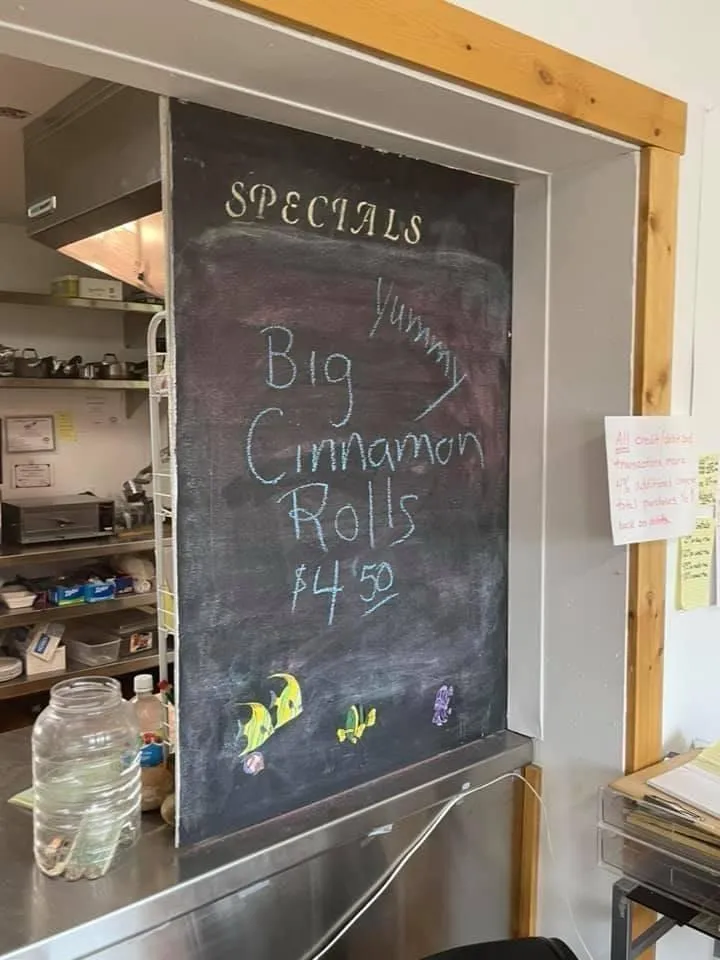 SPECIALS
Yummy
Big
Cinnamon
Rolls
$4 50
All credit/debit card
transactions
4% additional
total purchase
back on